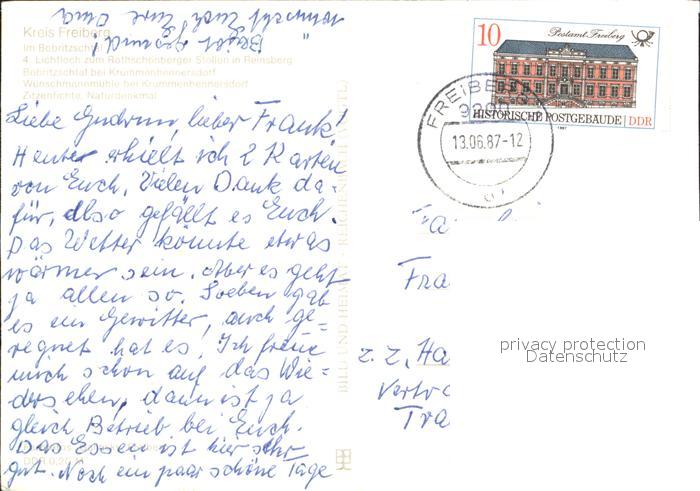 Kreis Freiberg
Im Bobritzschtal
4. Lichtloch zum Rothschönberger Stollen in Reinsberg
Bobritzschtal bei Krummenhennersdorf
Wünschmannmühle bei Krummenhennersdorf
Zitzenfichte, Naturdenkmal
Liebe Gudrun, lieber Frank!
Heute erhielt ich 2 Karten
von Euch. Vielen Dank da-
für, also gefällt es Euch.
Das Wetter könnte etwas
wärmer sein. Aber es geht
ja allen so. Soeben gab
es ein Gewitter, auch ge=
regnet hat es. Ich freue
mich schon auf das Wie=
dersehen, dann ist ja
gleich Betrieb bei Euch.
Das Essen ist hier sehr
gut. Noch ein paar schöne Tage
wünscht Euch Eure Oma
Bleibt gesund!
BILD UND HEIMAT REICHENBACH
10
Postamt Freiberg
HISTORISCHE POSTGEBÄUDE DDR
1987
FREIBERG
9200
13.06.87-12
Fra
z. Z. Ha
Tra
privacy protection
Datenschutz